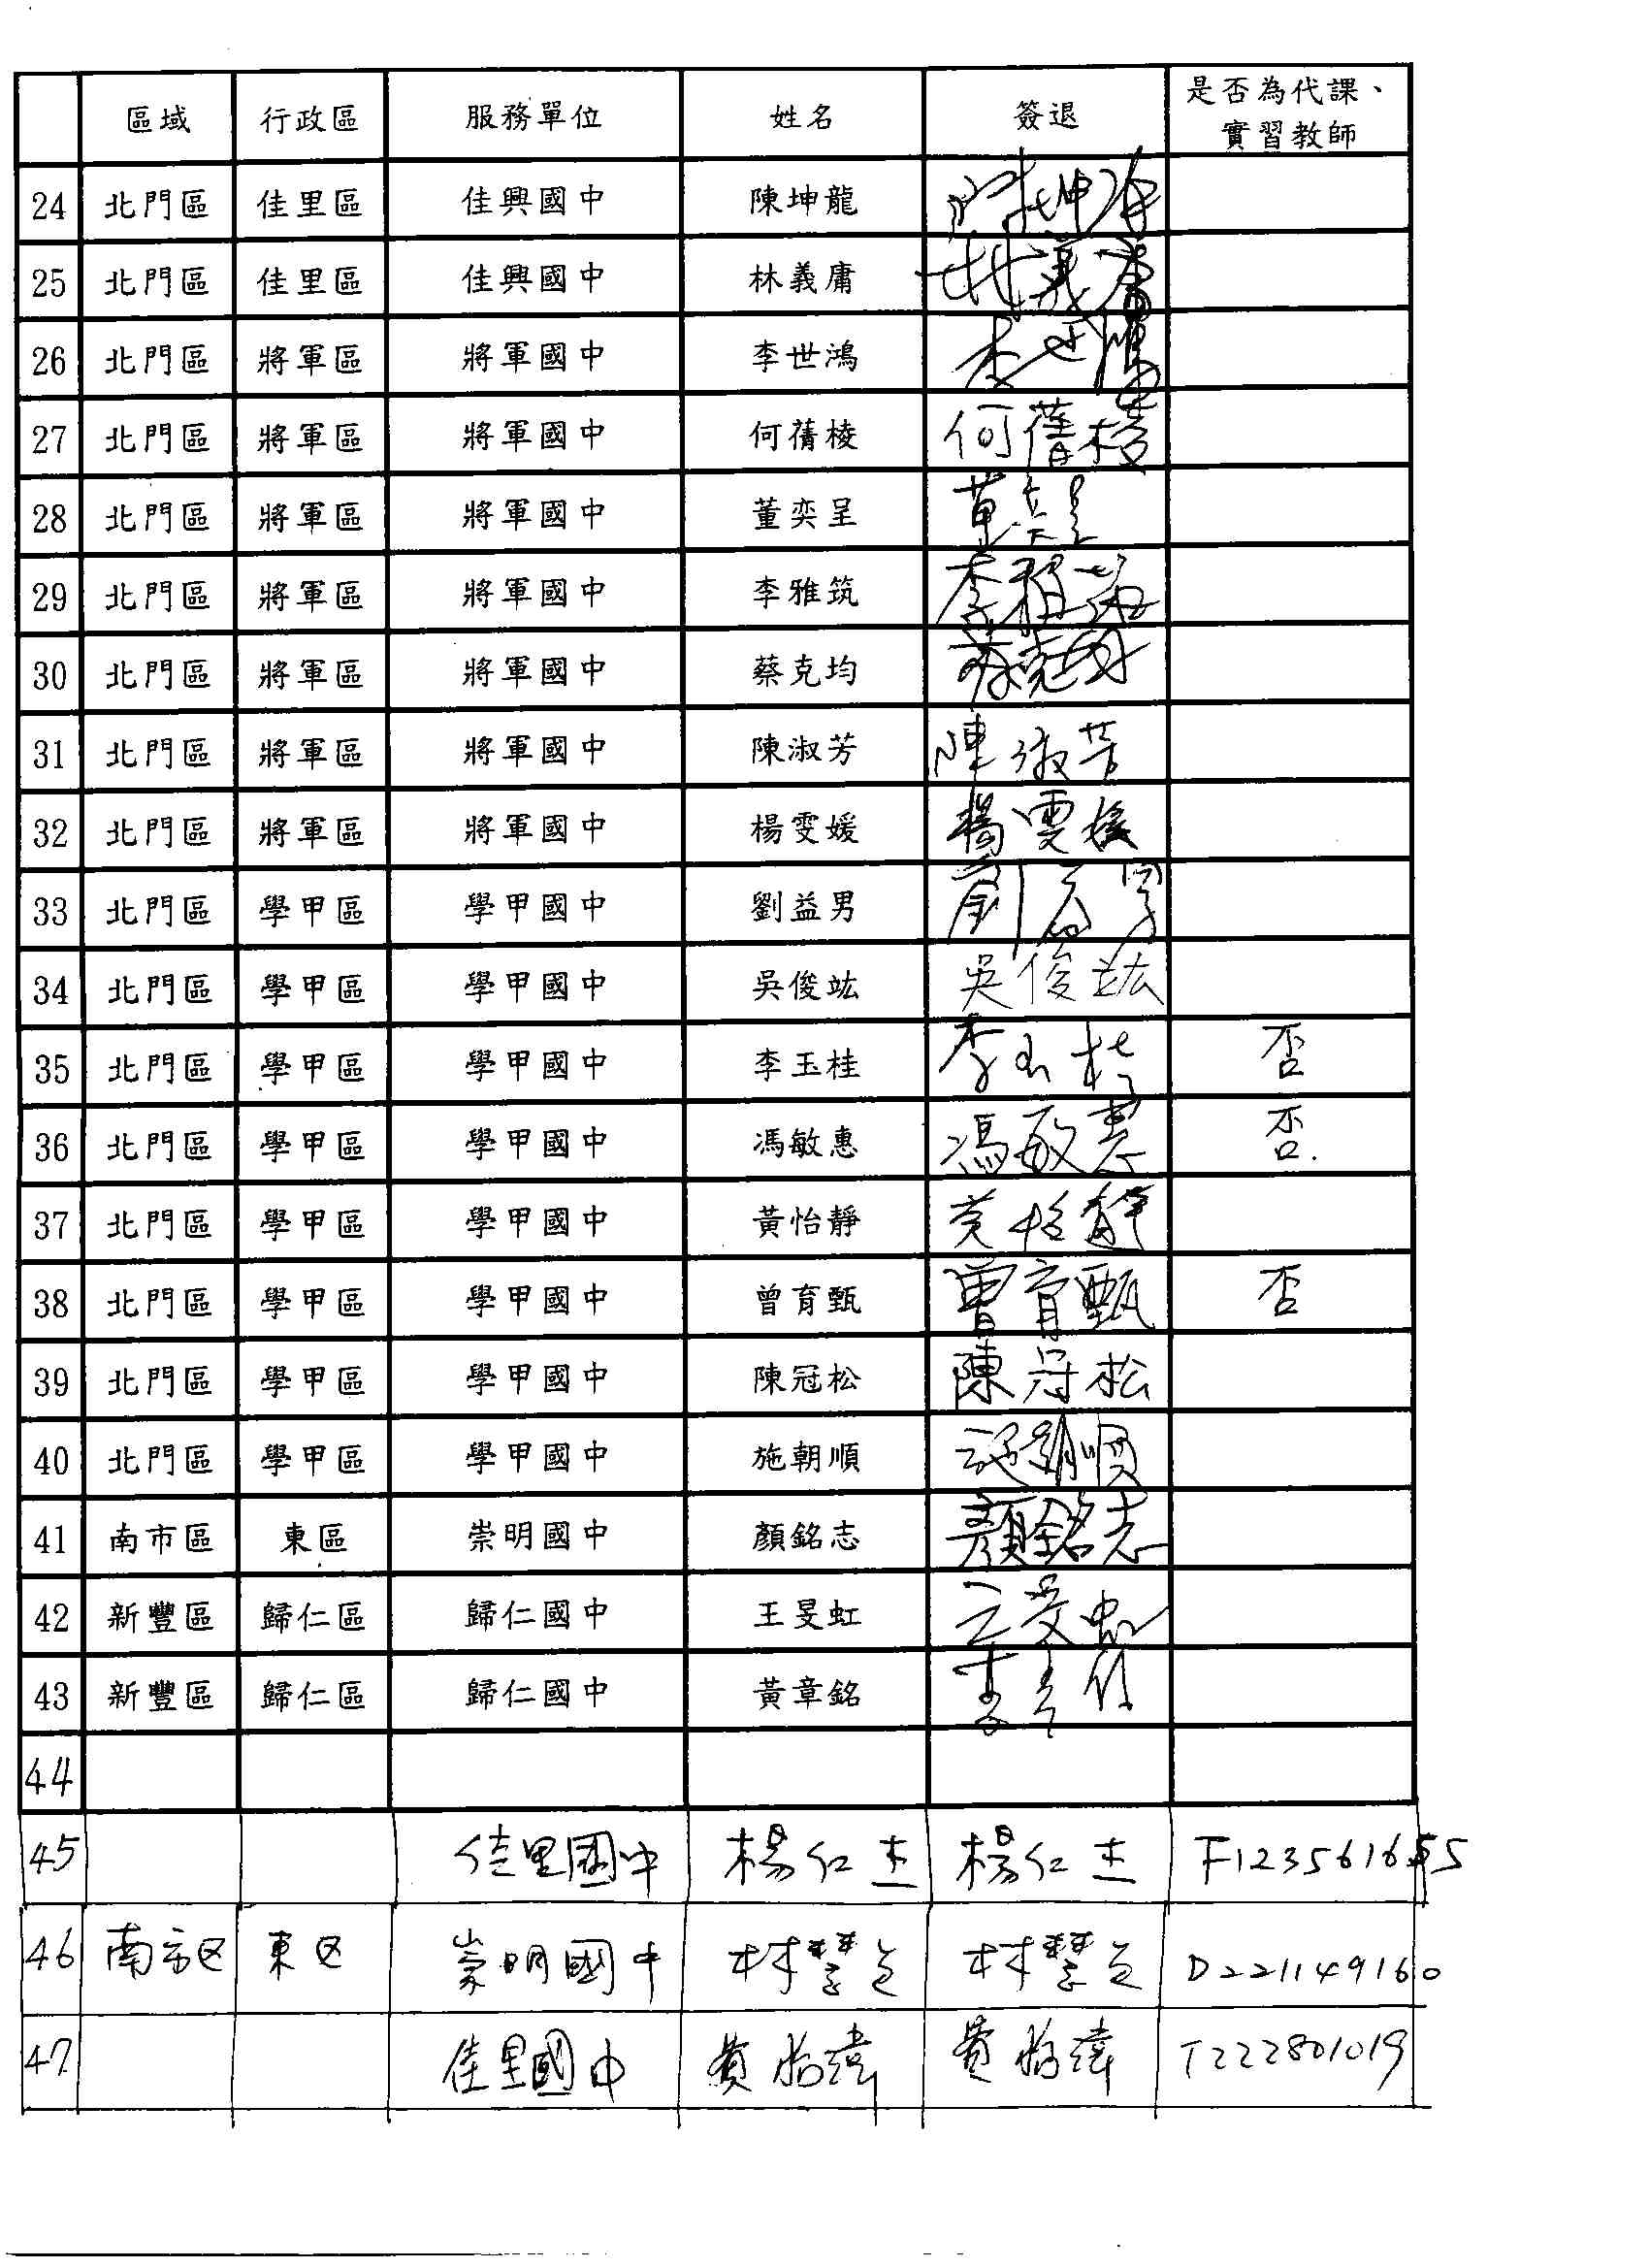 區域 行政區 服務單位 姓名 簽退 是否為代課、實習教師
24 北門區 佳里區 佳興國中 陳坤龍 陳坤龍
25 北門區 佳里區 佳興國中 林義庸 林義庸
26 北門區 將軍區 將軍國中 李世鴻 李世鴻
27 北門區 將軍區 將軍國中 何蒨棱 何蒨棱
28 北門區 將軍區 將軍國中 董奕呈 董奕呈
29 北門區 將軍區 將軍國中 李雅筑 李雅筑
30 北門區 將軍區 將軍國中 蔡克均 蔡克均
31 北門區 將軍區 將軍國中 陳淑芳 陳淑芳
32 北門區 將軍區 將軍國中 楊雯媛 楊雯媛
33 北門區 學甲區 學甲國中 劉益男 劉益男
34 北門區 學甲區 學甲國中 吳俊竑 吳俊竑
35 北門區 學甲區 學甲國中 李玉桂 李玉桂 否
36 北門區 學甲區 學甲國中 馮敏惠 馮敏惠 否.
37 北門區 學甲區 學甲國中 黃怡靜 黃怡靜
38 北門區 學甲區 學甲國中 曾育甄 曾育甄 否
39 北門區 學甲區 學甲國中 陳冠松 陳冠松
40 北門區 學甲區 學甲國中 施朝順 施朝順
41 南市區 東區 崇明國中 顏銘志 顏銘志
42 新豐區 歸仁區 歸仁國中 王旻虹 王旻虹
43 新豐區 歸仁區 歸仁國中 黃章銘
44
45 佳里國中 楊仁杰 楊仁杰 F123561655
46 南市区 東区 崇明國中 林慧 林慧 D221149160
47 佳里國中 黃怡諱 黃怡諱 T222801019